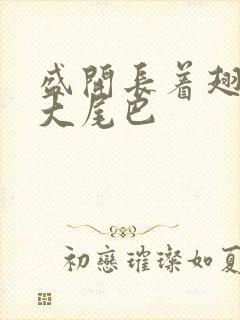 盛開長着翅
大尾巴
初戀璀璨如夏